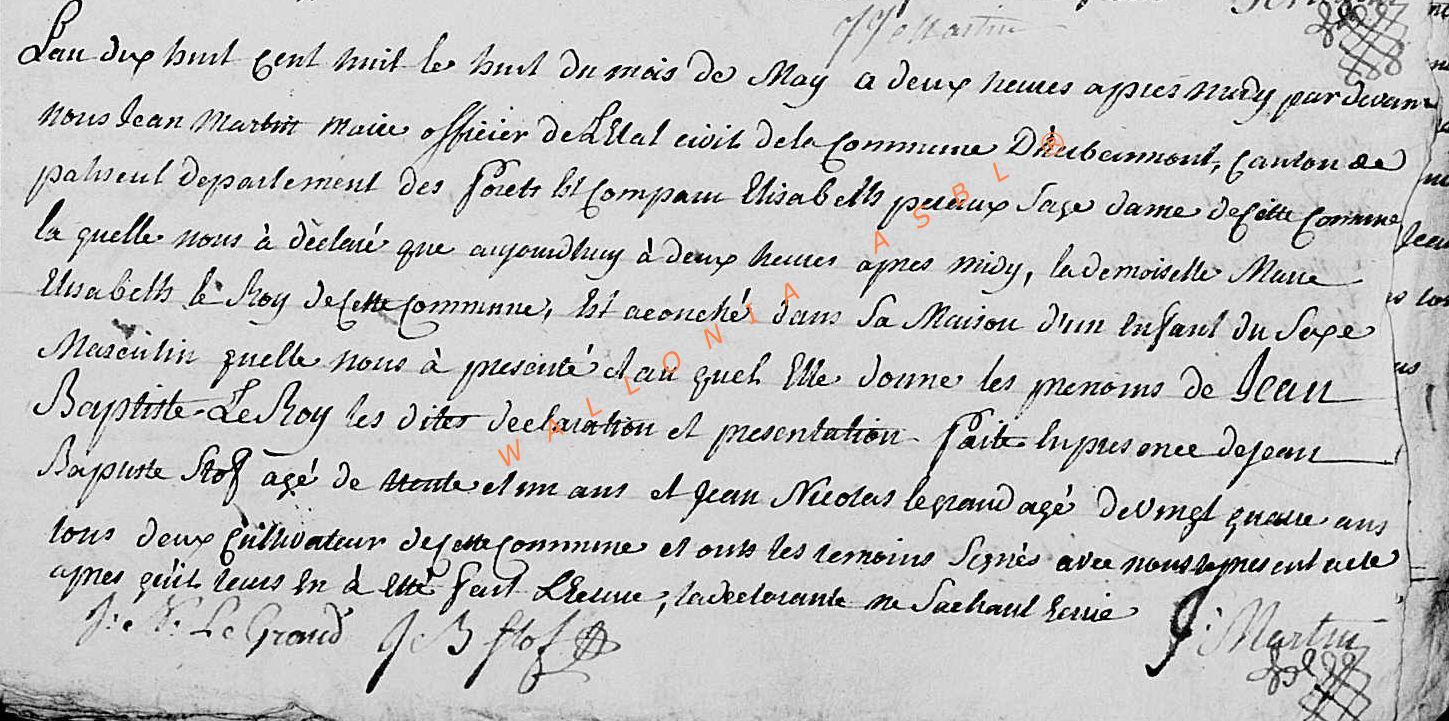 J J Martin
L'an dix huit cent huit le huit du mois de May a deux heures apres midy par devant
nous Jean Martin maire officier de L'Etat civil de la Commune D'herbeumont, canton de
paliseul departement des forets Est Comparu Elisabeth peraux Sage dame de Cette Commune
la quelle nous à déclaré que aujourdhuy à deux heures apres midy, la demoiselle Marie
Elisabeth le Roy de Cette Commune, Est acouché dans Sa Maison d'un Enfant du Sexe
Masculin quelle nous à presenté et au quel Elle donne les prenoms de Jean
Baptiste Le Roy les dites declaration et presentation faite En presence de Jean
Baptiste Stof agé de trente et un ans et Jean Nicolas legrand agé de vingt quatre ans
tous deux Cultivateur de Cette Commune et onts les temoins Signés avec nous le present acte
apres qu'il leurs En à Etté fait LEcture, la declarante ne Sachant Ecrire
J: N: Le Grand J B Stof J: Martin
WALLONIA ASBL ®